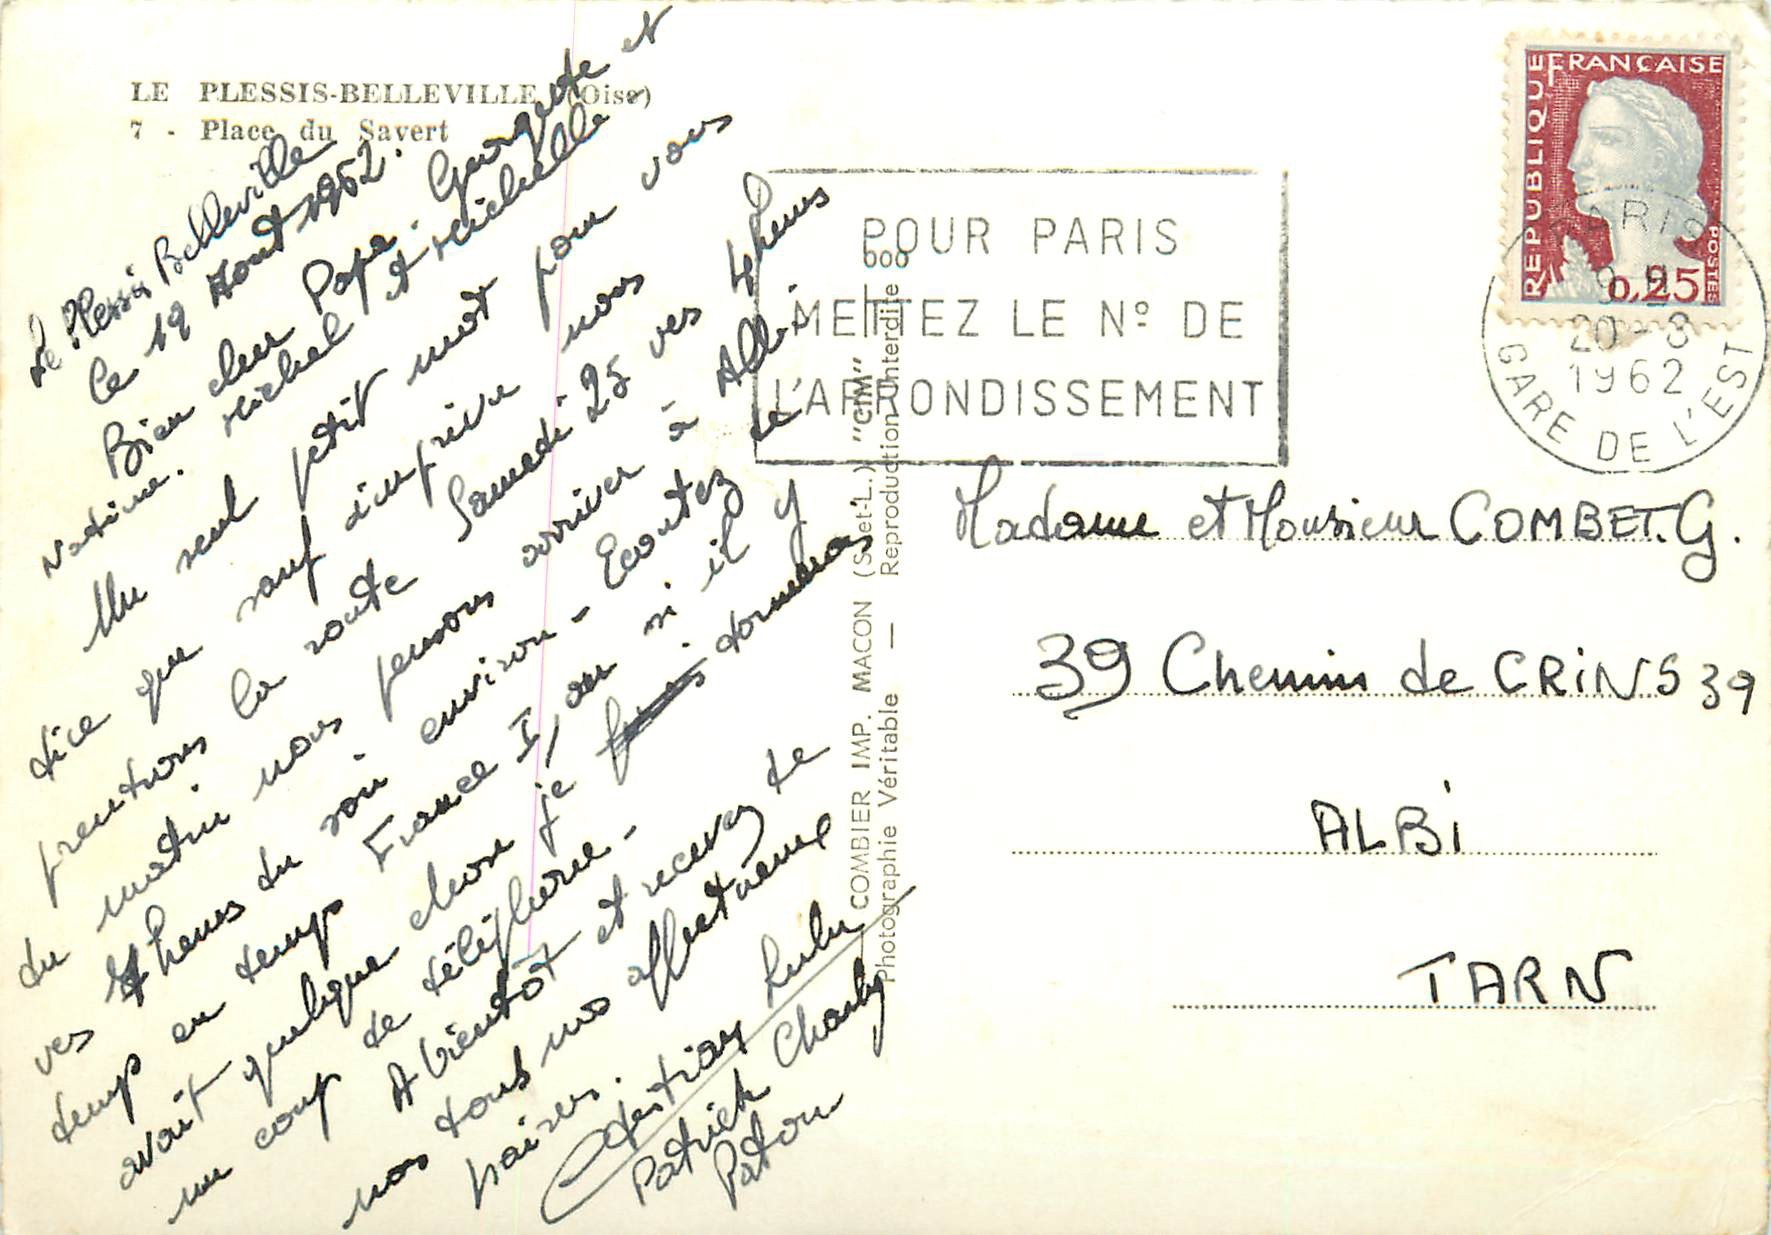 LE PLESSIS-BELLEVILLE (Oise)
7 - Place du Savert
Le Plessis Belleville
Ce 19 Aout 1962.
Bien cher Papa. Georgette et
Nadine. Michel et Michelle
Un seul petit mot pour vous
dire que sauf imprévu nous
prendrons la route Samedi 25 vers 4 heures
du matin nous pensons arriver à Albi
vers 7 heures du soir environ - Ecoutez de
temps en temps France I, au si il y
avait quelque chose je donnerais
un coup de téléphone -
A bientôt et recevez de
nos tous nos affectueux
baisers.
Christian Lulu
Patrick Charly
Patou
COMBIER IMP. MACON (S.-et-L.) "CIM"
Photographie Véritable — Reproduction Interdite
POUR PARIS
METTEZ LE Nº DE
L'ARRONDISSEMENT
REPUBLIQUE FRANÇAISE
POSTES
0,25
PARIS
20 - 8
1962
GARE DE L'EST
Madame et Monsieur COMBET. G.
39 Chemin de CRINS 39
ALBI
TARN